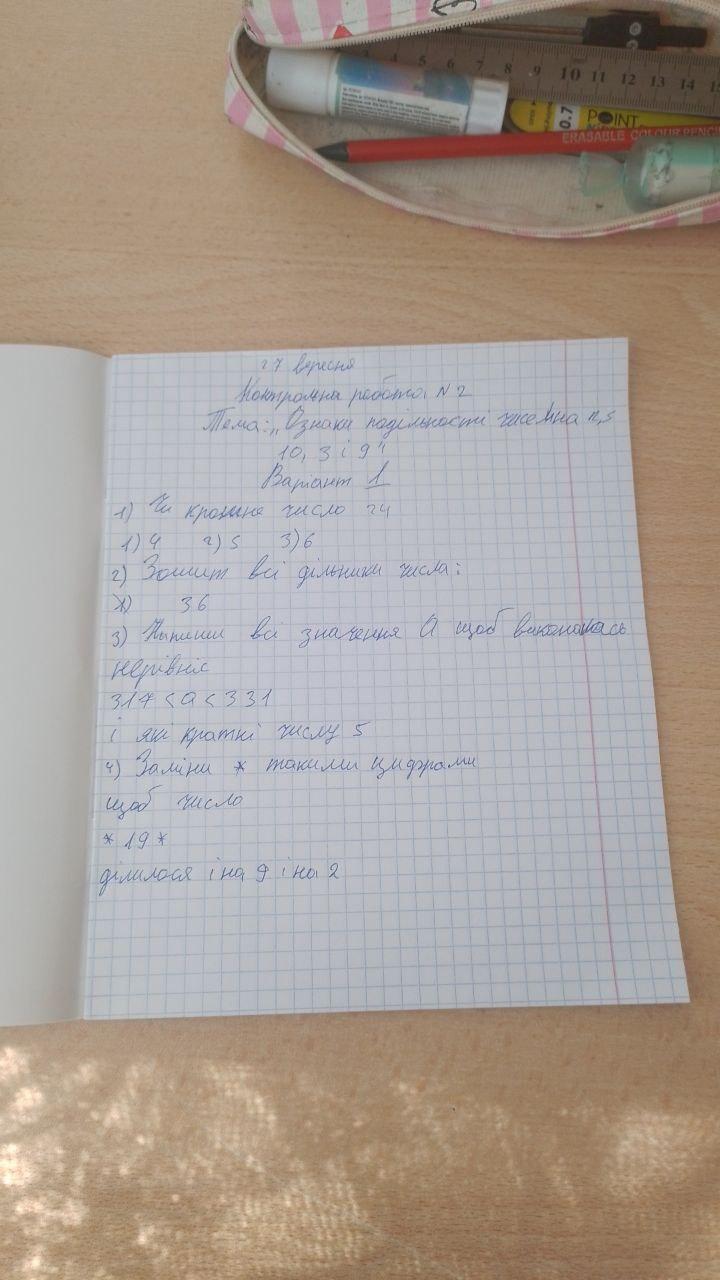 3 4 5 6 7 8 9 10 11 12 13 14 15
0.7 POINT
ERASABLE COLOUR PENCIL
27 вересня
Контрольна робота N2
Тема: „Ознаки подільності чисел на 2,5
10, 3 і 9"
Варіант 1
1) Чи кратне число 24
1) 4 2) 5 3) 6
2) всі дільники числа:
36
3) всі значення а щоб виконалась
нерівніс
317 < а < 331
і які кратні числу 5
4) Заміни * такими цифрами
щоб число
* 19 *
ділилося і на 9 і на 2